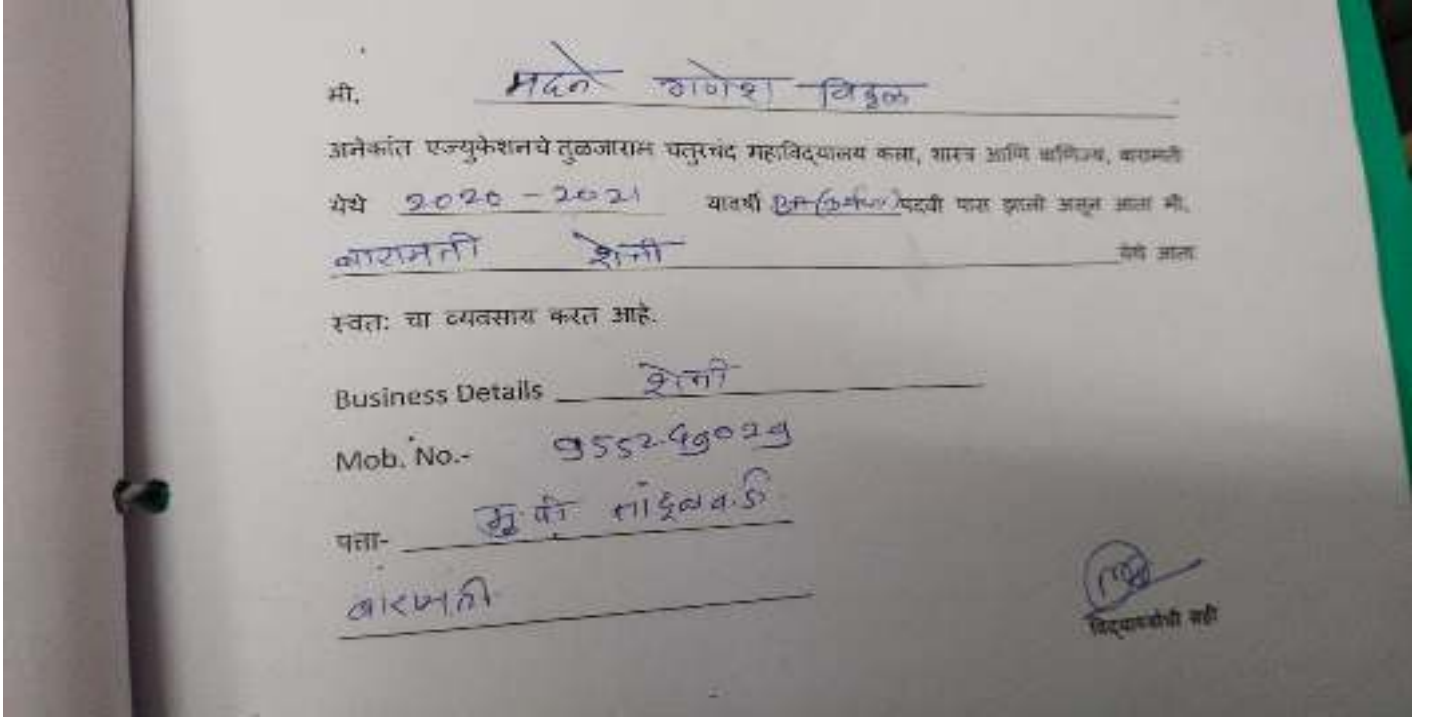 मी, मदने गणेश विठ्ठल
अनेकांत एज्युकेशनचे तुळजाराम चतुरचंद महाविद्यालय कला, शास्त्र आणि वाणिज्य, बारामती
येथे 2020 - 2021 यावर्षी पदवी पास झालो असून आता मी,
बारामती शेती येथे आता
स्वत: चा व्यवसाय करत आहे.
Business Details शेती
Mob. No.-
पत्ता- मु. पो
बारामती
विद्यार्थ्याची सही